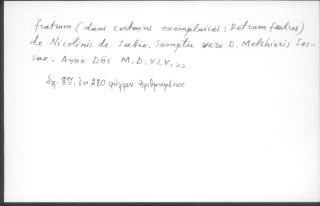 fratrum (dans certains exemplaires: Petrum fratres)
de Nicolinis de Sabio. Sumptu vero D. Melchioris Ses-
sae. Anno Dñi M.D.XLV.»
Σχ. 8ον, ἐκ 280 φύλλων ἀριθμημένων